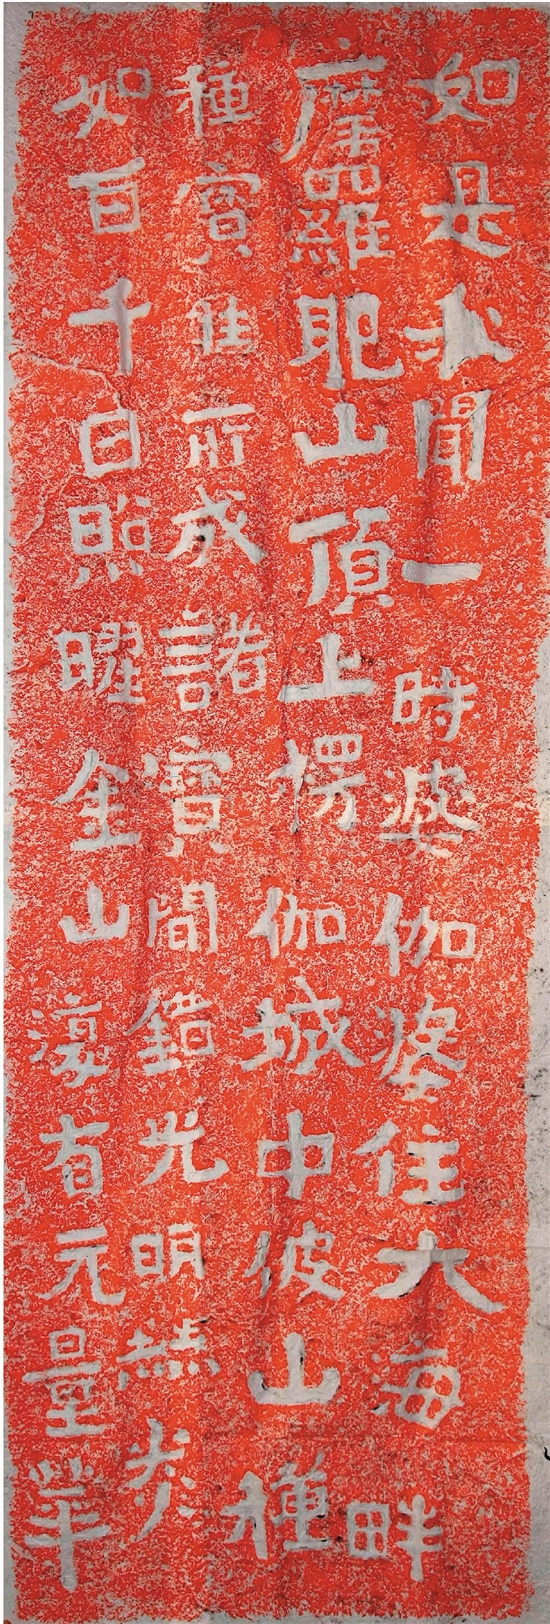 如是我聞一時婆伽婆住大海畔
摩羅耶山頂上楞伽城中彼山種
種寶性所成諸寶間錯光明赫炎
如百千日照曜金山復有无量華